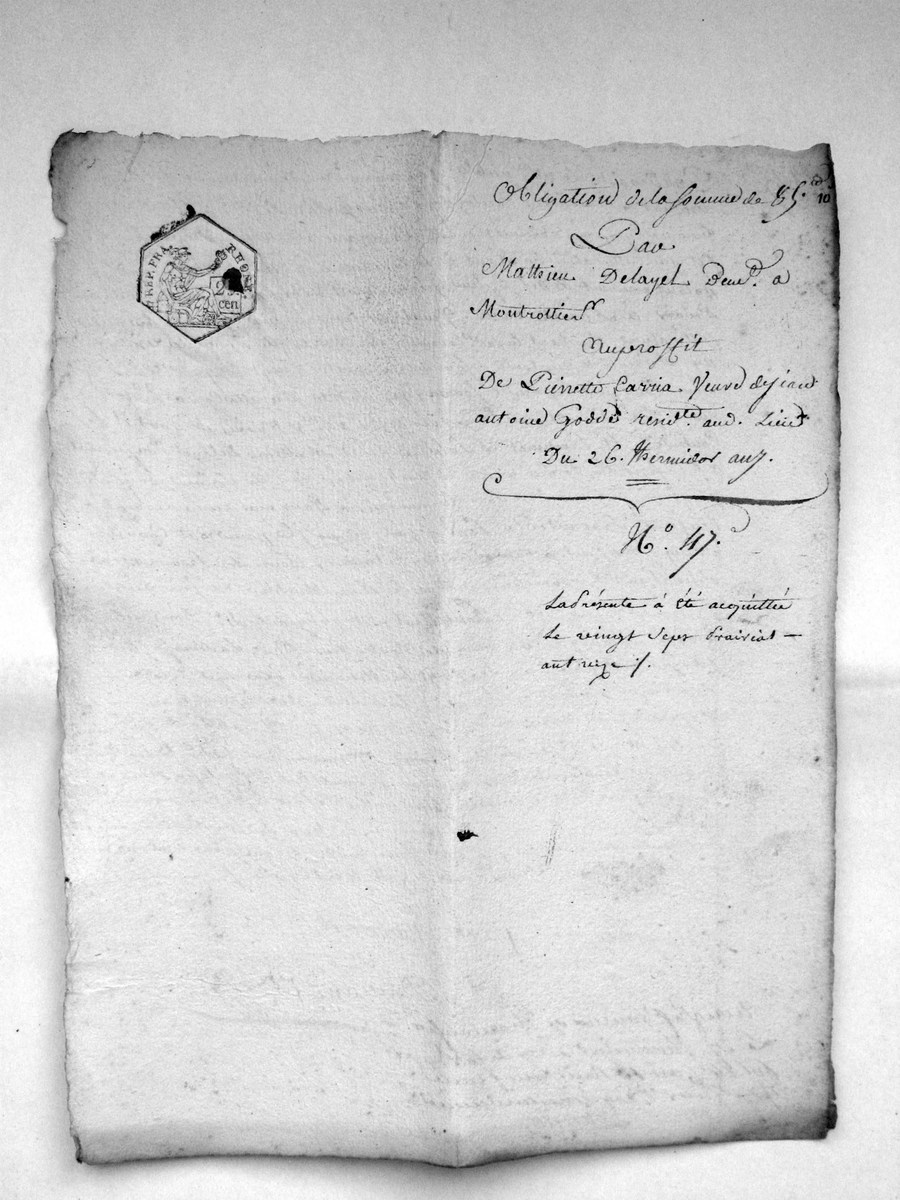 REP. FRA. RHONE
25 cen
Obligation de la somme de 85.
10
Par
Mathieu Delayel Deme.d a
Montrottier
Au proffit
De Pierrette Carria Veuve de jean
antoine Goddé resid.te aud. Lieu
Du 26. thermidor an 7.
N.o 47.
La Présente à été acquittée
Le vingt Sept Prairial —
an treize /.